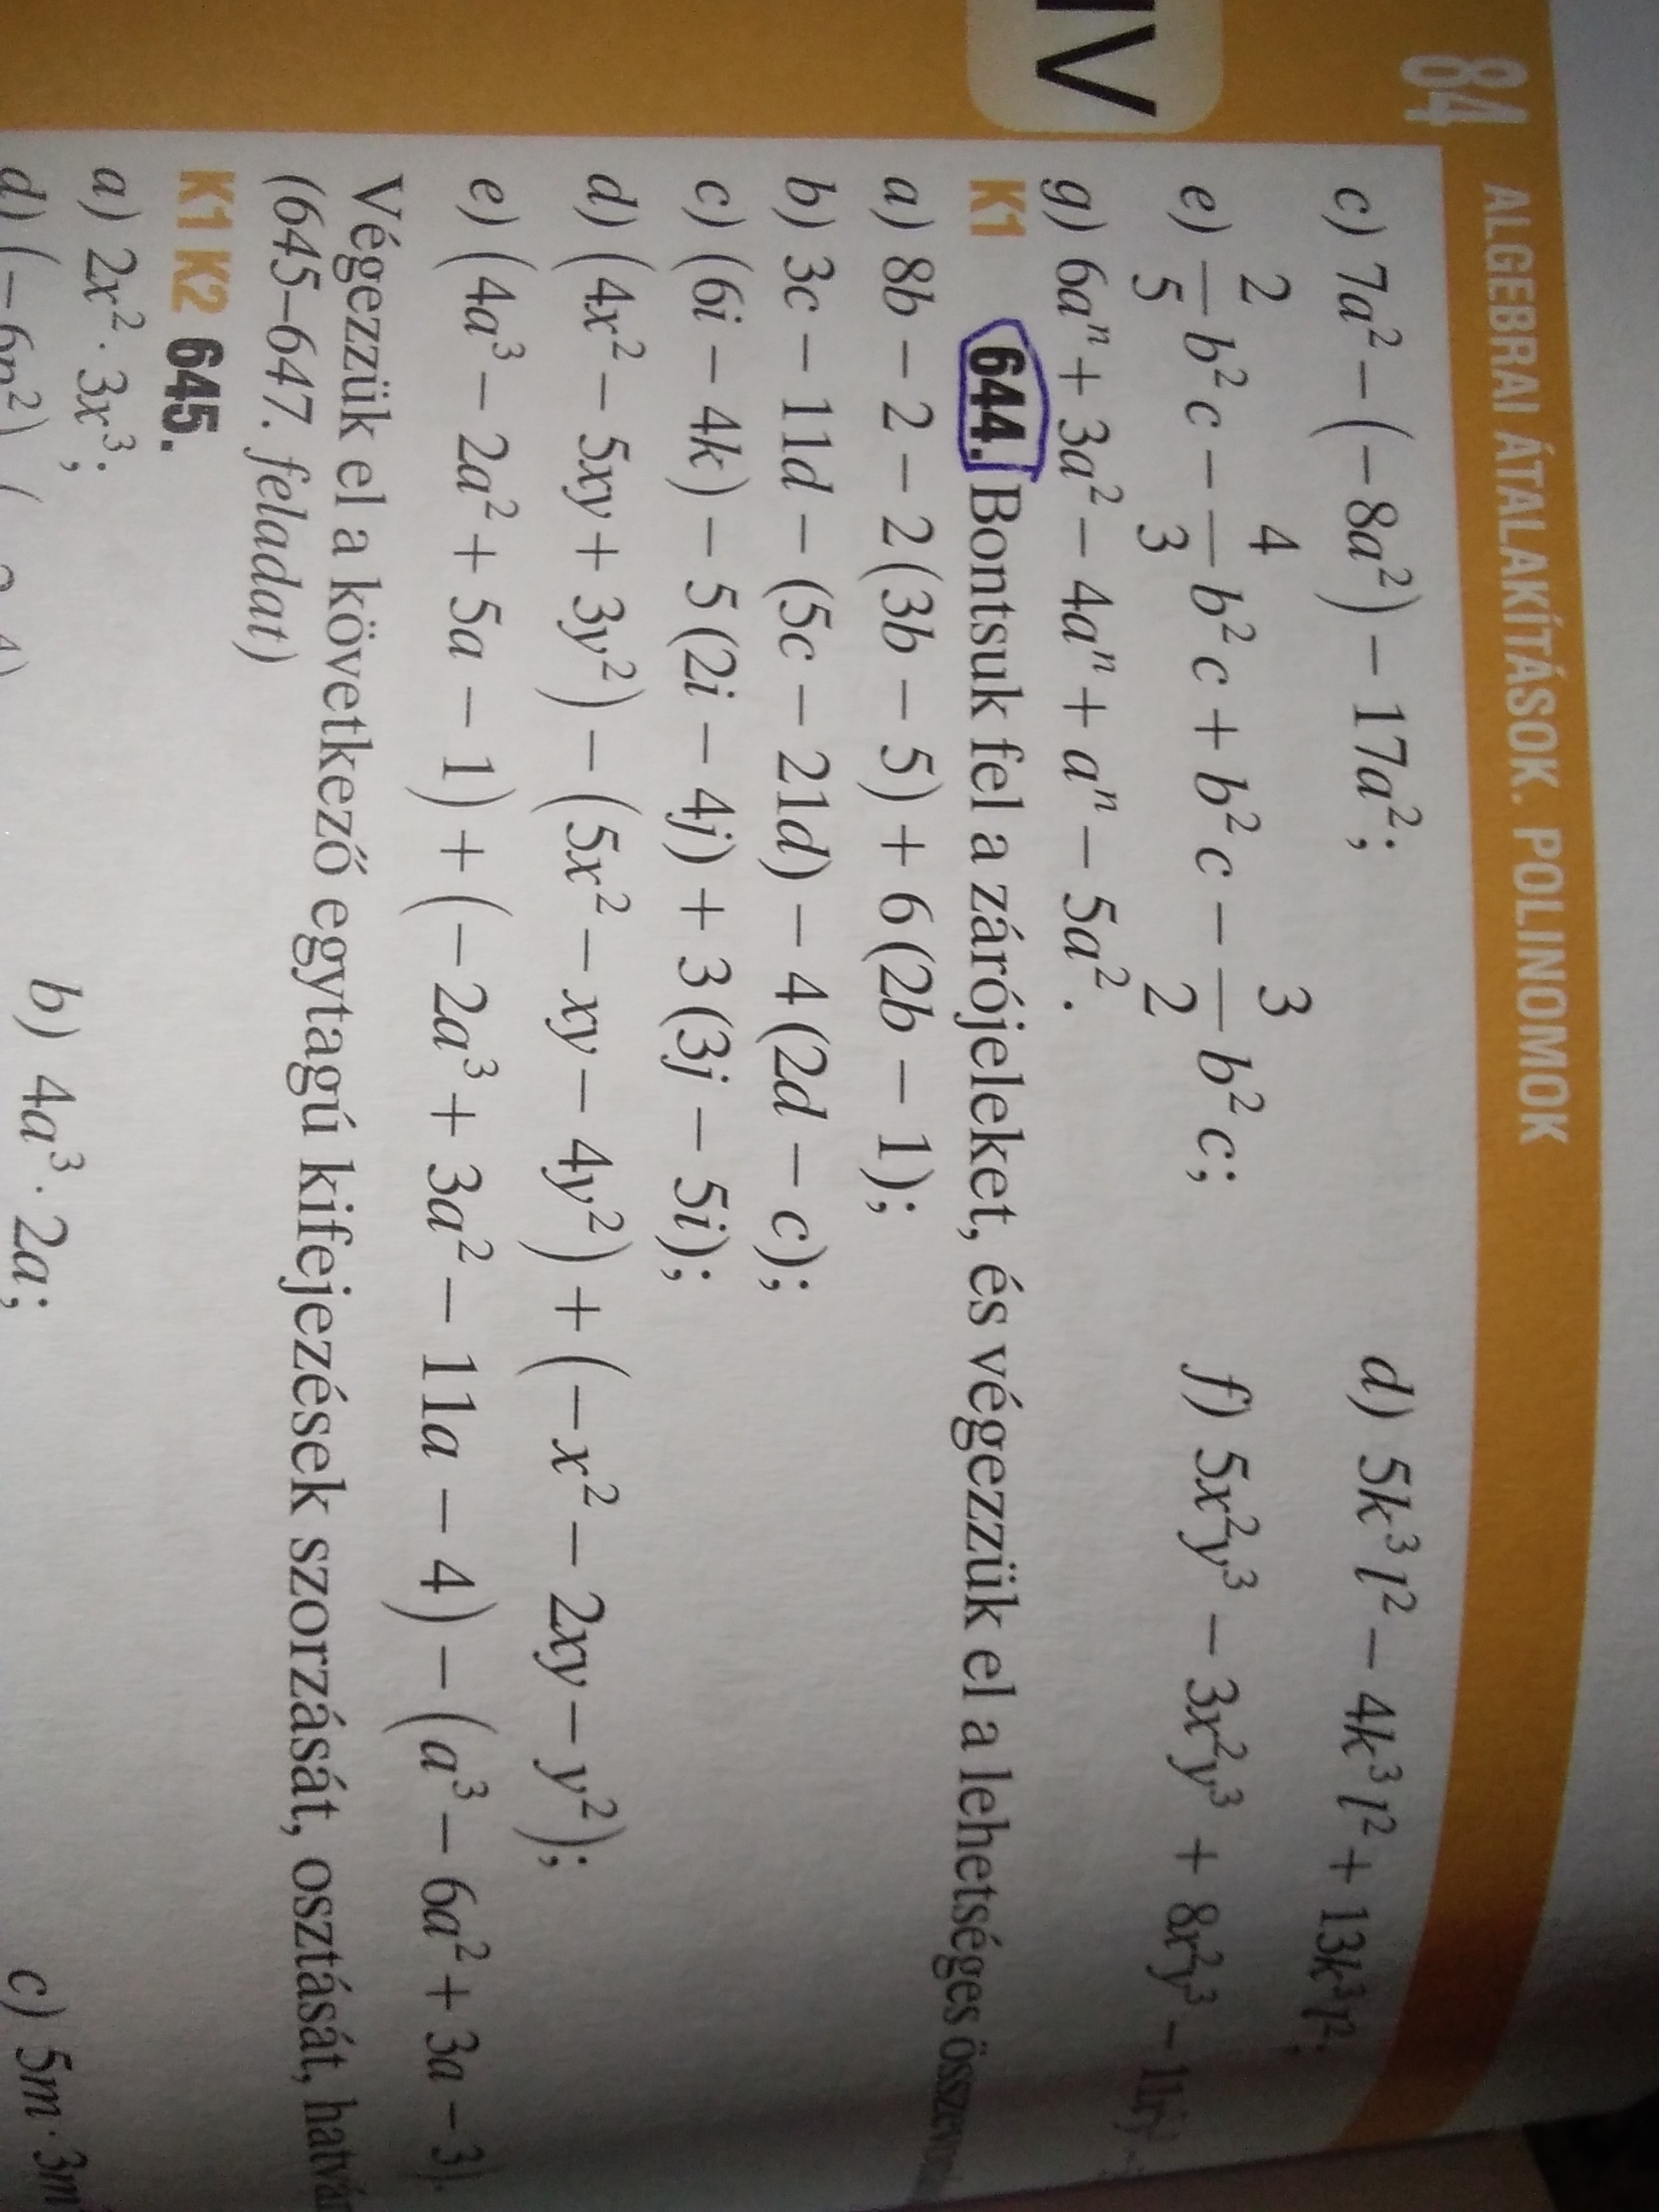 84 ALGEBRAI ÁTALAKÍTÁSOK. POLINOMOK
IV
c) 7a² − (−8a²) − 17a²; d) 5k³l² − 4k³l² + 13k³l²;
e) 2/5 b²c − 4/3 b²c + b²c − 3/2 b²c; f) 5x²y³ − 3x²y³ + 8x²y³ −
g) 6aⁿ + 3a² − 4aⁿ + aⁿ − 5a².
K1 644. Bontsuk fel a zárójeleket, és végezzük el a lehetséges
a) 8b − 2 − 2(3b − 5) + 6(2b − 1);
b) 3c − 11d − (5c − 21d) − 4(2d − c);
c) (6i − 4k) − 5(2i − 4j) + 3(3j − 5i);
d) (4x² − 5xy + 3y²) − (5x² − xy − 4y²) + (−x² − 2xy − y²);
e) (4a³ − 2a² + 5a − 1) + (−2a³ + 3a² − 11a − 4) − (a³ − 6a² + 3a − 3).
Végezzük el a következő egytagú kifejezések szorzását, osztását,
(645–647. feladat)
K1 K2 645.
a) 2x² · 3x³; b) 4a³ · 2a; c) 5m · 3m
d) (−6n²)